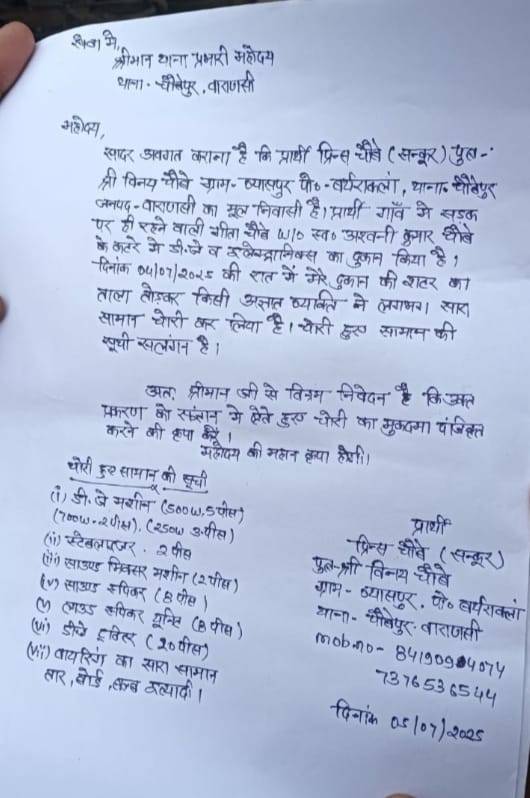 सेवा में,
श्रीमान थाना प्रभारी महोदय
थाना - चौबेपुर, वाराणसी
महोदय,
सादर अवगत कराना है कि प्रार्थी प्रिन्स चौबे (सन्कूर) पुत्र-
श्री विनय चौबे ग्राम- व्यासपुर पो०-बर्थराकलां, थाना- चौबेपुर
जनपद-वाराणसी का मूल निवासी है। प्रार्थी गाँव में सड़क
पर ही रहने वाली गीता चौबे W/O स्व० अश्वनी कुमार चौबे
के कटरे में डी.जे व इलेक्ट्रानिक्स का दुकान किया है।
दिनांक 04/07/2025 की रात में मेरे दुकान की शटर का
ताला तोड़कर किसी अज्ञात व्यक्ति ने लगभग सारा
सामान चोरी कर लिया है। चोरी हुए सामान की
सूची सलंगन है।
अतः श्रीमान जी से विनम्र निवेदन है कि उक्त
प्रकरण को संज्ञान में लेते हुए चोरी का मुकदमा पंजिकृत
करने की कृपा करें।
महोदय की महान कृपा होगी।
चोरी हुए सामान की सूची
(i) डी.जे मशीन (500W. 5 पीस)
(700W-2 पीस), (250W 3 पीस)
(ii) स्टेबलाइजर - 2 पीस
(iii) साउण्ड मिक्सर मशीन (2 पीस)
(iv) साउण्ड स्पिकर (8 पीस)
(v) लाउड स्पिकर यूनिट (8 पीस)
(vi) डीजे ट्विटर (20 पीस)
(vii) वायरिंग का सारा सामान
तार, बोर्ड, बल्ब इत्यादी।
प्रार्थी
प्रिन्स चौबे (सन्कूर)
पुत्र-श्री विनय चौबे
ग्राम - व्यासपुर, पो० बर्थराकलां
थाना- चौबेपुर- वाराणसी
mob.no- 8419094074
7376536544
दिनांक 05/07/2025